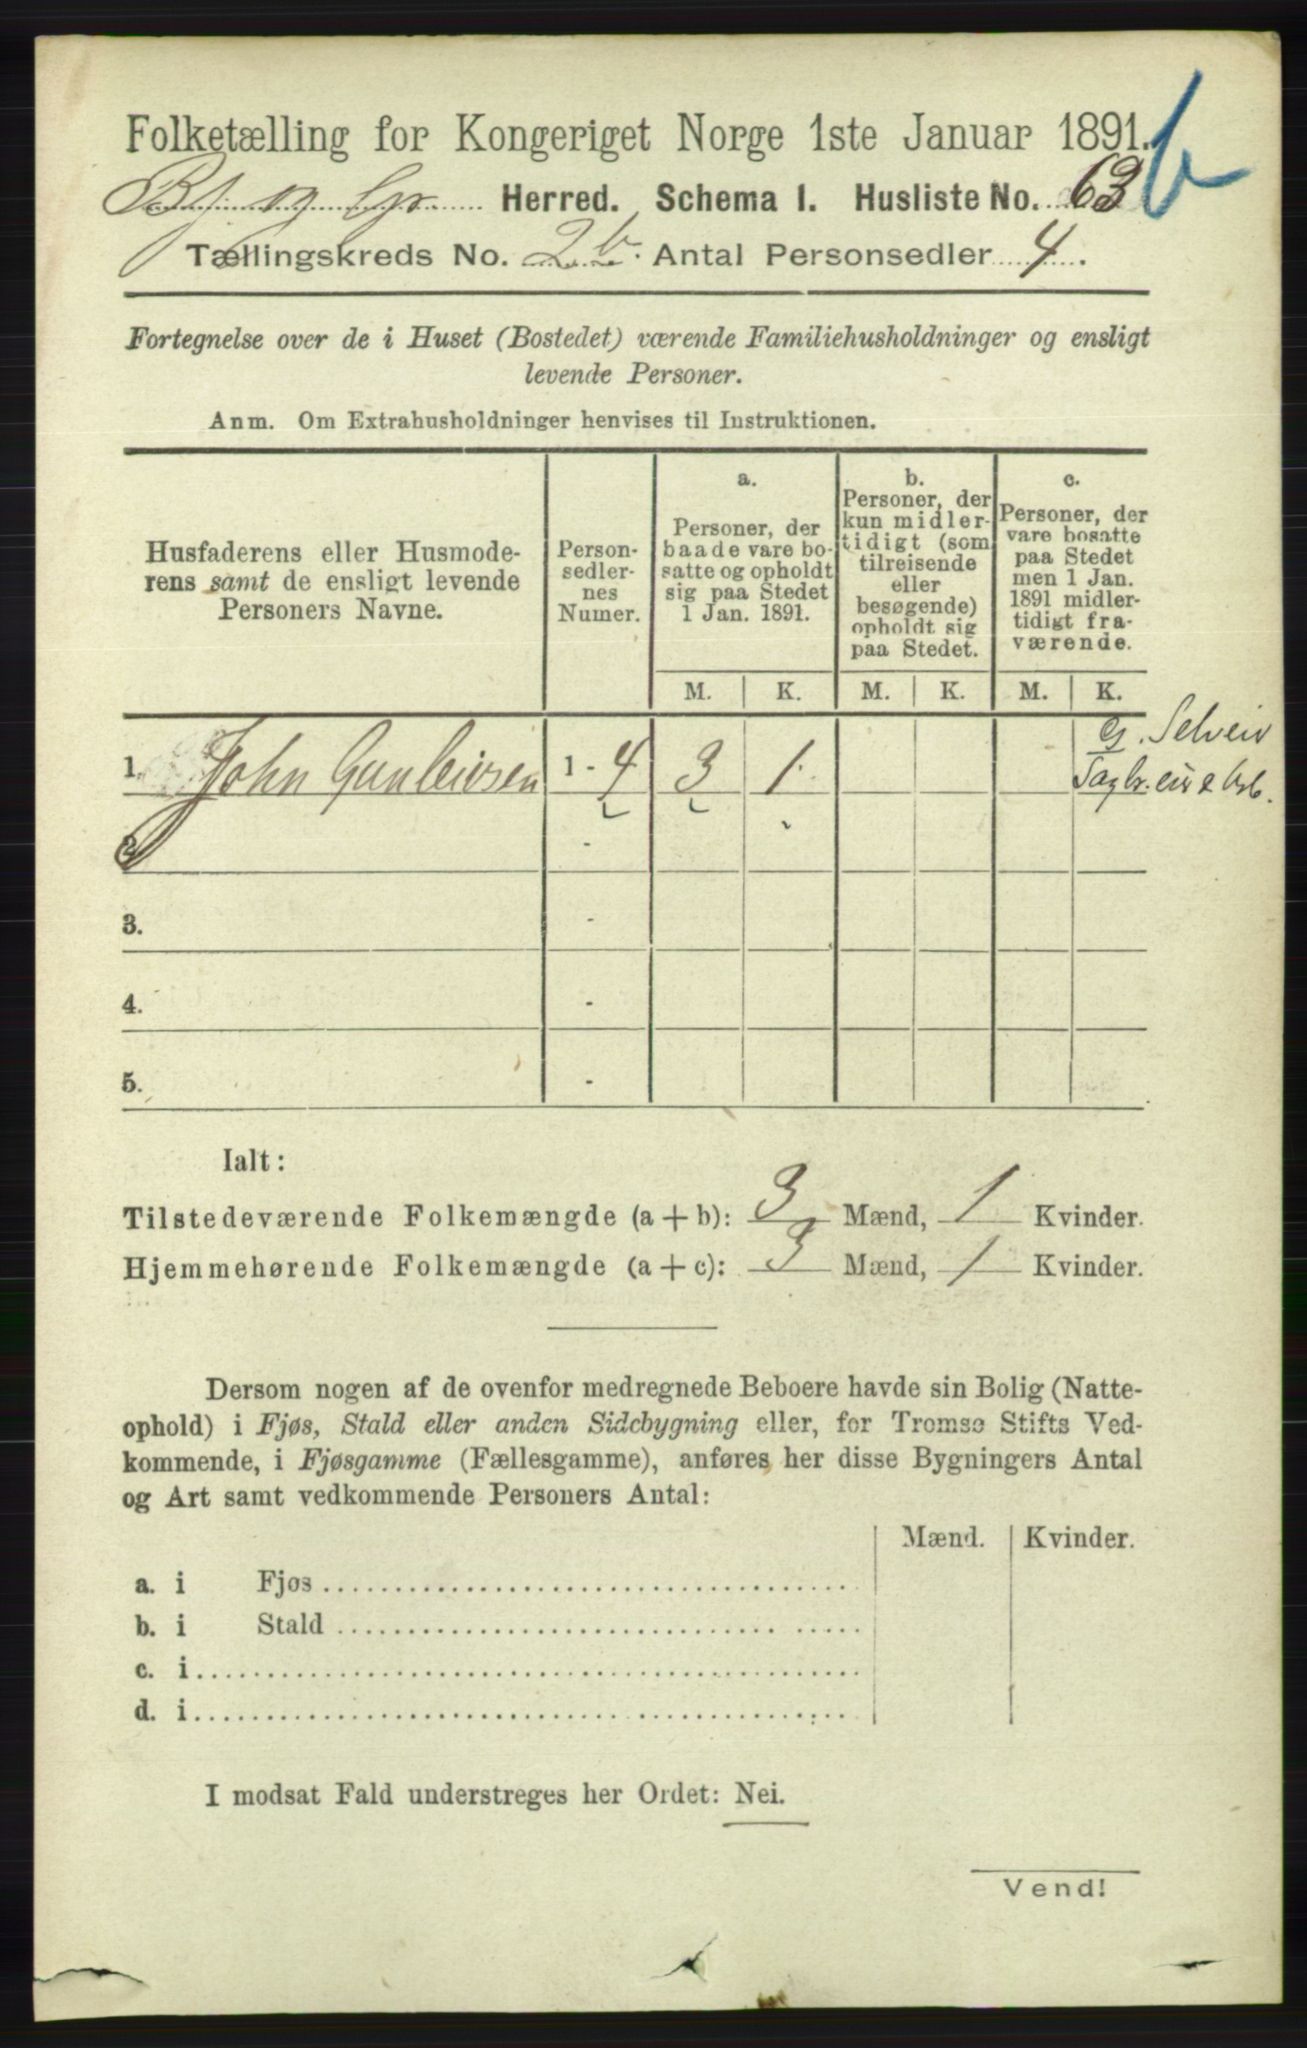 Folketælling for Kongeriget Norge 1ste Januar 1891. b
Herred. Schema 1. Husliste No. 63
Tællingskreds No. 2b. Antal Personsedler 4.
Fortegnelse over de i Huset (Bostedet) værende Familiehusholdninger og ensligt
levende Personer.
Anm. Om Extrahusholdninger henvises til Instruktionen.
Husfaderens eller Husmode-
rens samt de ensligt levende
Personers Navne.
Person-
sedler-
nes
Numer.
a.
Personer, der
baade vare bo-
satte og opholdt
sig paa Stedet
1 Jan. 1891.
b.
Personer, der
kun midler-
tidigt (som
tilreisende
eller
besøgende)
opholdt sig
paa Stedet.
c.
Personer, der
vare bosatte
paa Stedet
men 1 Jan.
1891 midler-
tidigt fra-
værende.
M. K. M. K. M. K.
G. Selveier
1. John Gunleivsen 1 - 4 3 1
2. -
3. -
4. -
5. -
Ialt:
Tilstedeværende Folkemængde (a + b): 3 Mænd, 1 Kvinder.
Hjemmehørende Folkemængde (a + c): 3 Mænd, 1 Kvinder.
Dersom nogen af de ovenfor medregnede Beboere havde sin Bolig (Natte-
ophold) i Fjøs, Stald eller anden Sidebygning eller, for Tromsø Stifts Ved-
kommende, i Fjøsgamme (Fællesgamme), anføres her disse Bygningers Antal
og Art samt vedkommende Personers Antal:
Mænd. Kvinder.
a. i Fjøs
b. i Stald
c. i
d. i
I modsat Fald understreges her Ordet: Nei.
Vend!